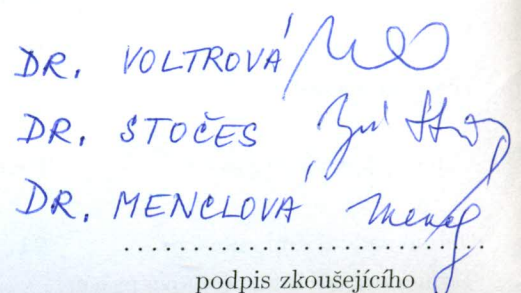 DR. VOLTROVÁ
DR. STOČES
DR. MENCLOVÁ
podpis zkoušejícího